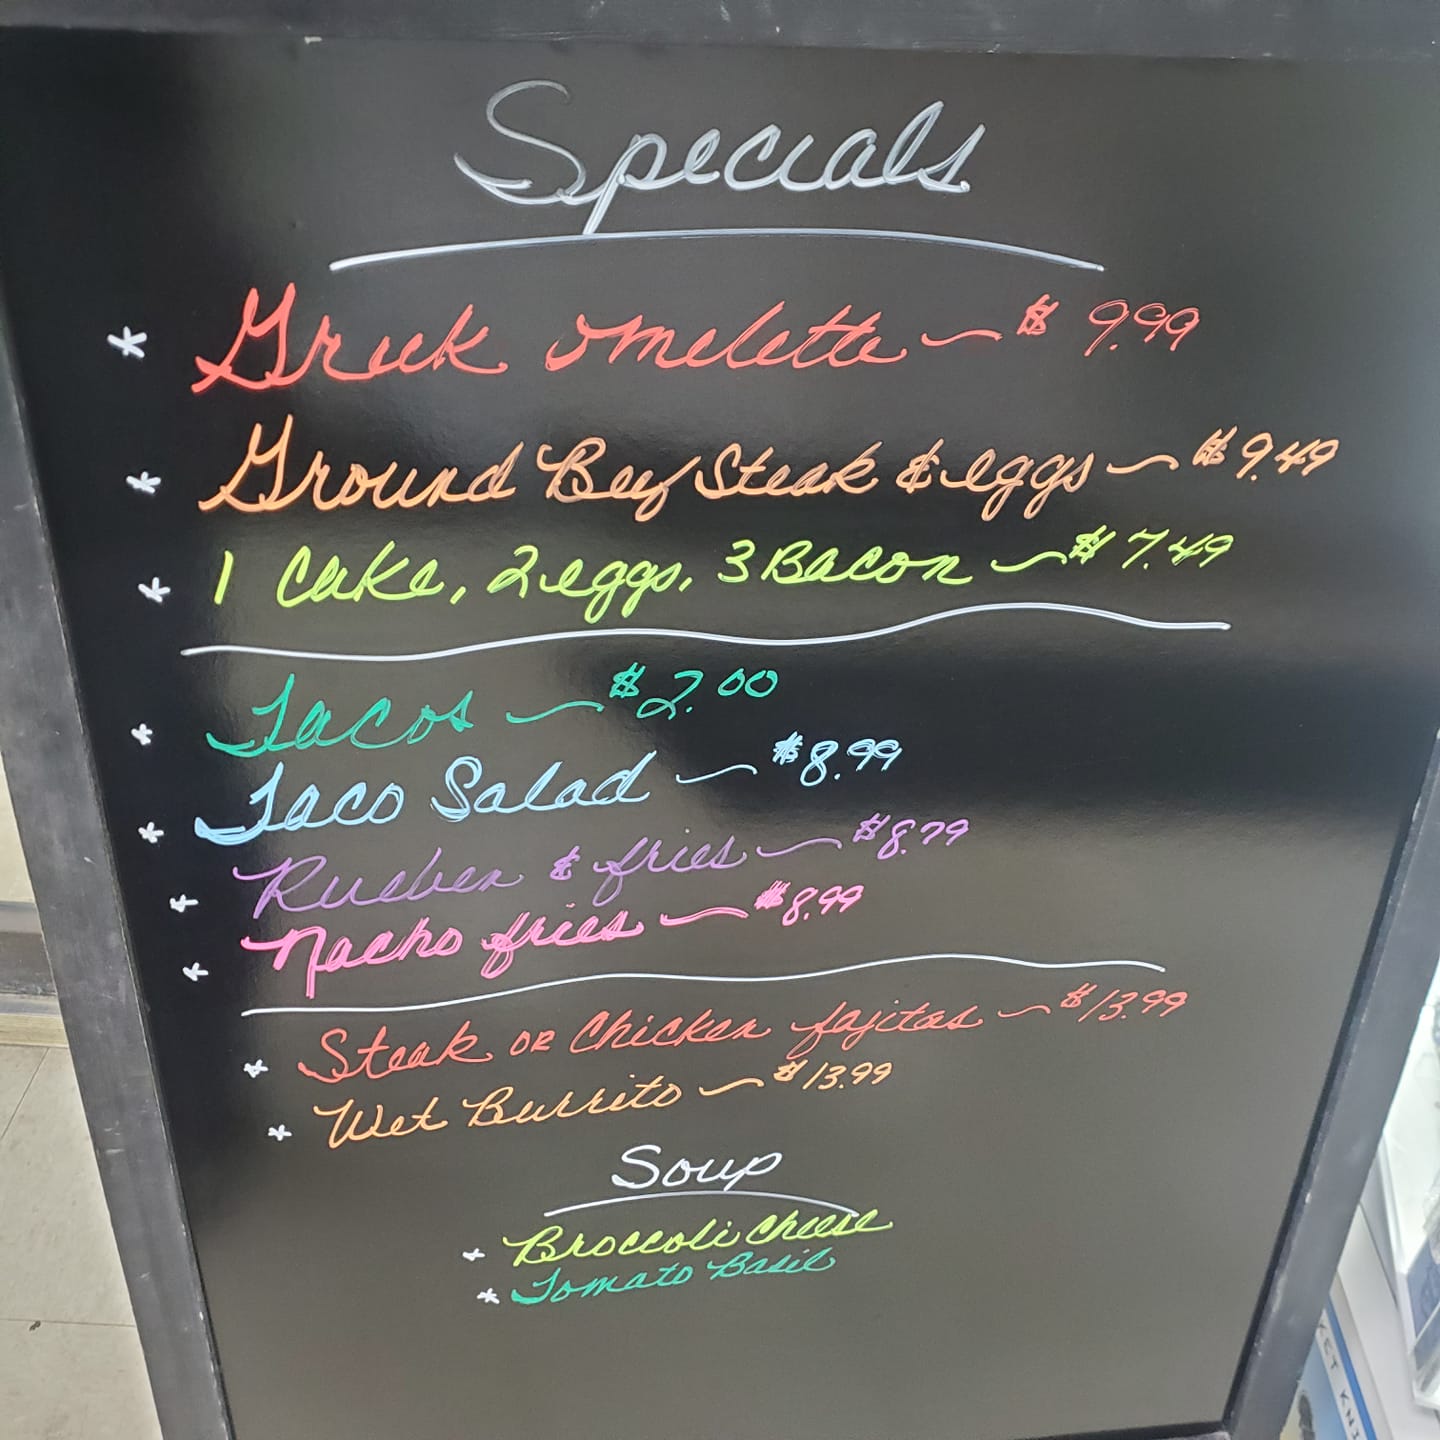 Specials
* Greek omelette - $ 9.99
* Ground Beef Steak & eggs - $9.49
* 1 Cake, 2 eggs, 3 Bacon - $7.49
* Tacos - $2.00
* Taco Salad - $8.99
* Rueben & fries - $8.79
* Nacho fries - $8.99
* Steak OR Chicken fajitas - $13.99
* Wet Burrito - $13.99
Soup
* Broccoli Cheese
* Tomato Basil